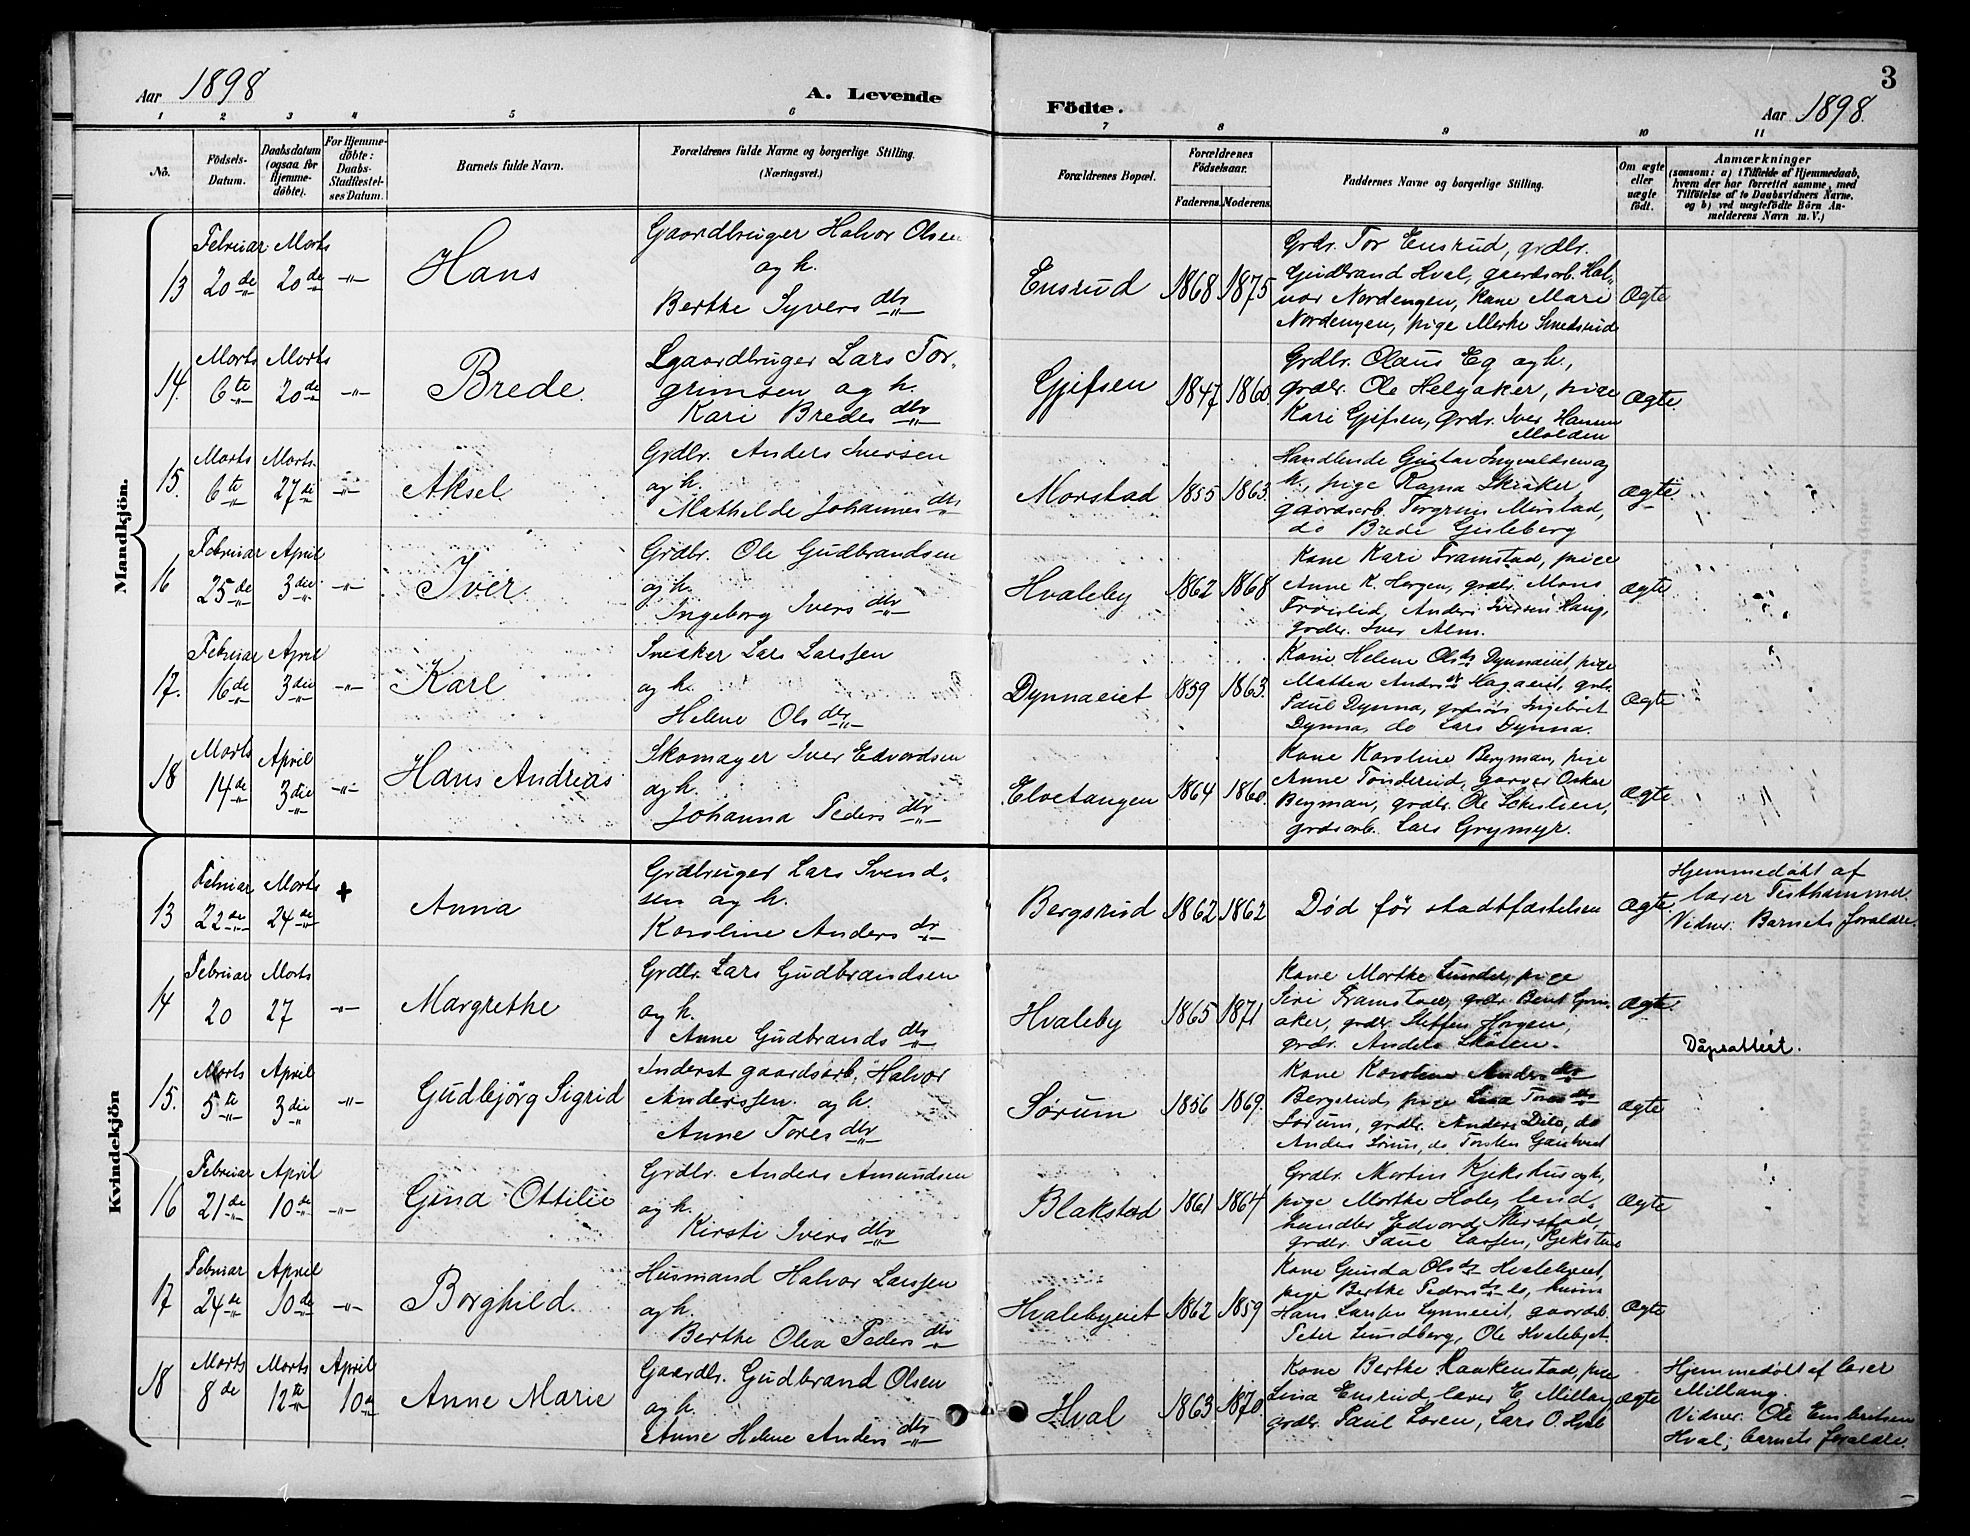 3
Aar 1898
A. Levende
Födte.
Aar 1898.
1 2 3 4 5 6 7 8 9 10 11
No.
Födsels-Datum.
Daabsdatum (ogsaa for Hjemme-döbte).
For Hjemme-döbte: Daabs-Stadfæstel-ses Datum.
Barnets fulde Navn.
Forældrenes fulde Navne og borgerlige Stilling.
(Næringsvei.)
Forældrenes Bopæl.
Forældrenes Födselsaar.
Faderens. Moderens.
Faddernes Navne og borgerlige Stilling.
Om ægte eller uægte födt.
Anmærkninger
(saasom: a) i Tilfælde af Hjemmedaab,
hvem der har forrettet samme, med
Tilföielse af to Daabsvidners Navne,
og b) ved uægtefödte Börn An-
melderens Navn m. V.)
Mandkjön.
13
Februar 20de
Morts 20de
-"-
Hans
Gaardbruger Halvor Olsen
og h.
Berthe Syversdtr
Ensrud
1868 1875
Grdr. Tor Ensrud, grdbr.
Gudbrand Hval, gaardsarb. Hal-
vor Nordengen, kone Mari
Nordengen, pige Merthe Smedsrud
Ægte
14.
Morts 6te
Morts 20de
-"-
Brede
Gaardbruger Lars Tor-
grimsen og h.
Kari Bredesdtr
Gjefsen
1847 1860.
Grdbr. Olaus Eg og h.,
grdbr. Ole Helgaker, pige
Kari Gjefsen, Grds. Iver Hansen
Molden
Ægte.
15.
Morts 6te
Morts 27de
-"-
Aksel
Grdbr. Anders Iversen
og h.
Mathilde Johannesdtr
Morstad
1855 1863.
Handlende Gustav Ingvaldsen og
h., pige Ragna Skraker
gaardsarb. Torgrim Morstad,
do Brede Gisleberg
Ægte
16
Februar 25de
April 3die
-"-
Iver
Grdbr. Ole Gudbrandsen
og h.
Ingeborg Iversdtr
Hvaleby
1862 1868
Kone Kari Framstad, pige
Anne K. Horgen, grdbr. Mons
Frøislid, Anders Iversen Haug,
grdbr. Iver Alm.
Ægte
17.
Februar 16de
April 3die
-"-
Karl
Snedker Lars Larssen
og h.
Helene Olsdtr
Dynnaeiet
1859 1863.
Kone Helene Olsdtr Dynnaeiet, pige
Mathea Andrsdtr Hagaeiet, grdbr.
Paul Dynna, grdsøn Ingebret
Dynna, do Lars Dynna.
Ægte
18
Morts 14de
April 3die
-"-
Hans Andreas
Skomager Iver Edvardsen
og h.
Johanna Pedersdtr
Elvetangen
1864 1860.
Kone Karoline Bergman, pige
Anne Tønderud, garver Oskar
Bergman, grdbr. Ole Schislien,
grdsarb. Lars Grymyr.
Ægte
Kvindekjön
13
Februar 22de
Morts 24de
+
Anna
Grdbruger Lars Svend-
sen og h.
Karoline Andersdtr
Bergsrud
1862 1862
Død før stadfæstelsen
Ægte.
Hjemmedøbt af
lærer Tisthammer.
Vidner: Barnets forældre.
14
Februar 20
Morts 27
-"-
Margrethe
Grdbr. Lars Gudbrandsen
og h.
Anne Gudbrandsdtr
Hvaleby
1865 1871
Kone Morthe Lunder, pige
Siri Framstad, grdbr. Berit Grin-
aker, grdbr. Steffen Horgen,
grdbr. Anders Skøien.
Ægte.
Dåpsattest.
15.
Morts 5te
April 3die
-"-
Gudbjörg Sigrid
Inderst gaardsarb. Halvor
Anderssen og h.
Anne Toresdtr
Sørum
1856 1869.
Kone Karoline Andersdtr
Bergsrud, pige Lisa Toresdtr
Sørum, grdbr. Anders Dito, do
Anders Sørum, do Torsten
Ægte
16
Februar 21de
April 10de
-"-
Gina Ottilie
Grdbr. Anders Amundsen
og h.
Kirsti Iversdtr
Blakstad
1861 1864
Grdbr. Martin Kjekshus og h.,
pige Morthe Hole, land-
handler Edvard Skirstad,
grdbr. Paul Larsen, Kjekshus
Ægte
17
Februar 24de
April 10de
-"-
Borghild.
Husmand Halvor Larssen
og h.
Berthe Olea Pedersdtr
Hvalebyeiet
1862 1859
Kone Gunda Olsdtr Hvalebyeiet,
pige Berthe Pedersdtr do, husm
Hans Larsen Lynneeiet, gaardb.
Peter Lundberg, Ole Hvalebyet.
Ægte
18
Morts 8de
Morts 12te
April 10de
Anne Marie
Gaardbr. Gudbrand Olsen
og h.
Anne Helene Andersdtr
Hval
1863 1870.
Kone Berthe Raakenstad, pige
Lina Ensrud, lærer E. Millang
grdbr. Paul Loren, Lars O. Hval
Ægte
Hjemmedøbt af lærer
Millang.
Vidner: Ole Embretsen
Hval; barnets forældre.